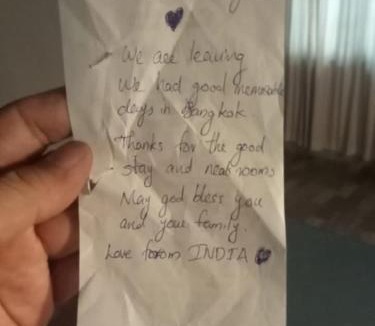 We are leaving
We had good memorable
days in Bangkok
Thanks for the good
stay and neat rooms
May god bless you
and your family.
Love from INDIA